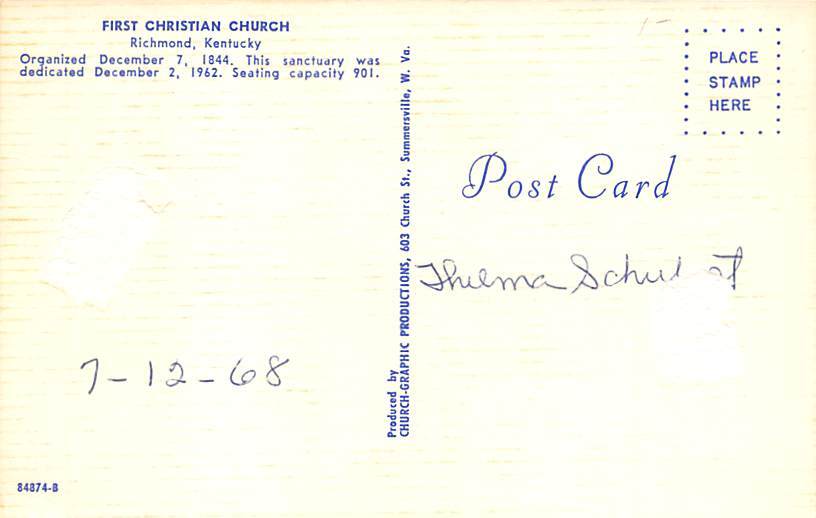 FIRST CHRISTIAN CHURCH
Richmond, Kentucky
Organized December 7, 1844. This sanctuary was
dedicated December 2, 1962. Seating capacity 901.
7-12-68
84874-B
Produced by
CHURCH-GRAPHIC PRODUCTIONS, 603 Church St., Summersville, W. Va.
PLACE
STAMP
HERE
Post Card
Thelma